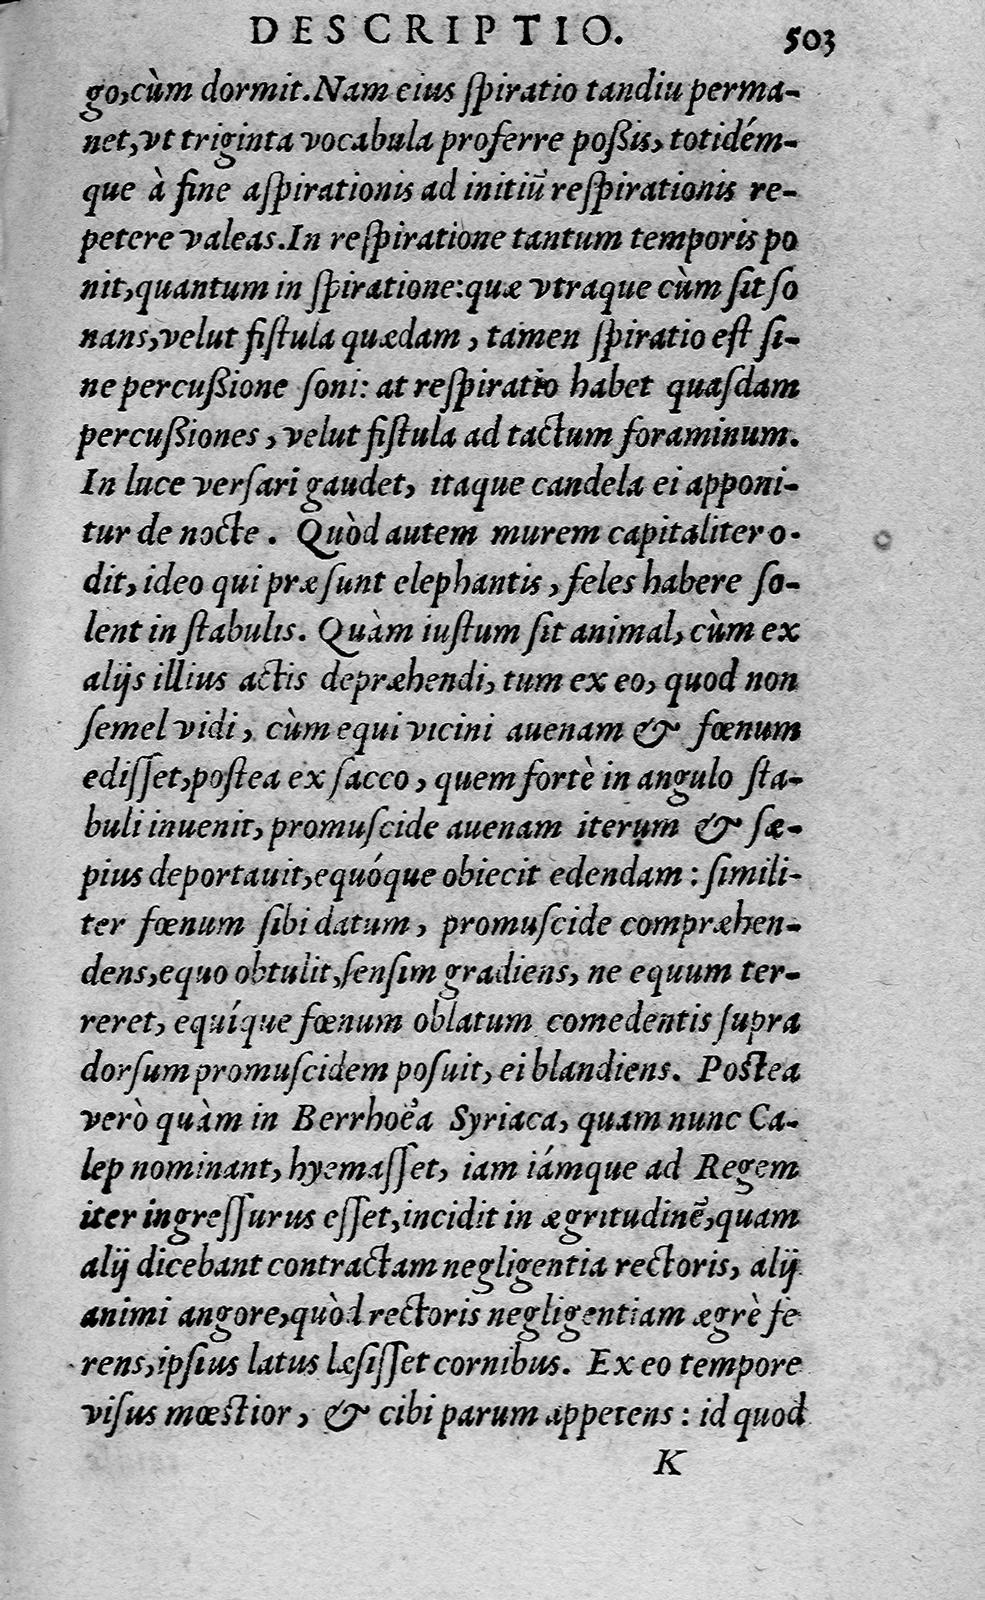 DESCRIPTIO. 503
go,cùm dormit.Nam eius ſpiratio tandiu perma-
net,vt triginta vocabula proferre poßis, totidém-
que à fine aſpirationis ad initiū reſpirationis re-
petere valeas.In reſpiratione tantum temporis po
nit,quantum in ſpiratione:quæ vtraque cùm ſit ſo
nans,velut fiſtula quædam, tamen ſpiratio eſt ſi-
ne percußione ſoni: at reſpiratio habet quaſdam
percußiones, velut fiſtula ad tactum foraminum.
In luce verſari gaudet, itaque candela ei apponi-
tur de nocte. Quòd autem murem capitaliter o-
dit, ideo qui præſunt elephantis, feles habere ſo-
lent in ſtabulis. Quàm iuſtum ſit animal, cùm ex
alijs illius actis depræhendi, tum ex eo, quod non
ſemel vidi, cùm equi vicini auenam & fœnum
ediſſet,poſtea ex ſacco, quem fortè in angulo ſta-
buli inuenit, promuſcide auenam iterum & ſæ-
pius deportauit,equóque obiecit edendam: ſimili-
ter fœnum ſibi datum, promuſcide compræhen-
dens,equo obtulit,ſenſim gradiens, ne equum ter-
reret, equíque fœnum oblatum comedentis ſupra
dorſum promuſcidem poſuit, ei blandiens. Poſtea
verò quàm in Berrhoëa Syriaca, quam nunc Ca-
lep nominant, hyemaſſet, iam iámque ad Regem
iter ingreſſurus eſſet,incidit in ægritudinē,quam
alij dicebant contractam negligentia rectoris, alij
animi angore,quòd rectoris negligentiam ægrè fe
rens,ipſius latus læſiſſet cornibus. Ex eo tempore
viſus mœſtior, & cibi parum appetens: id quod
K